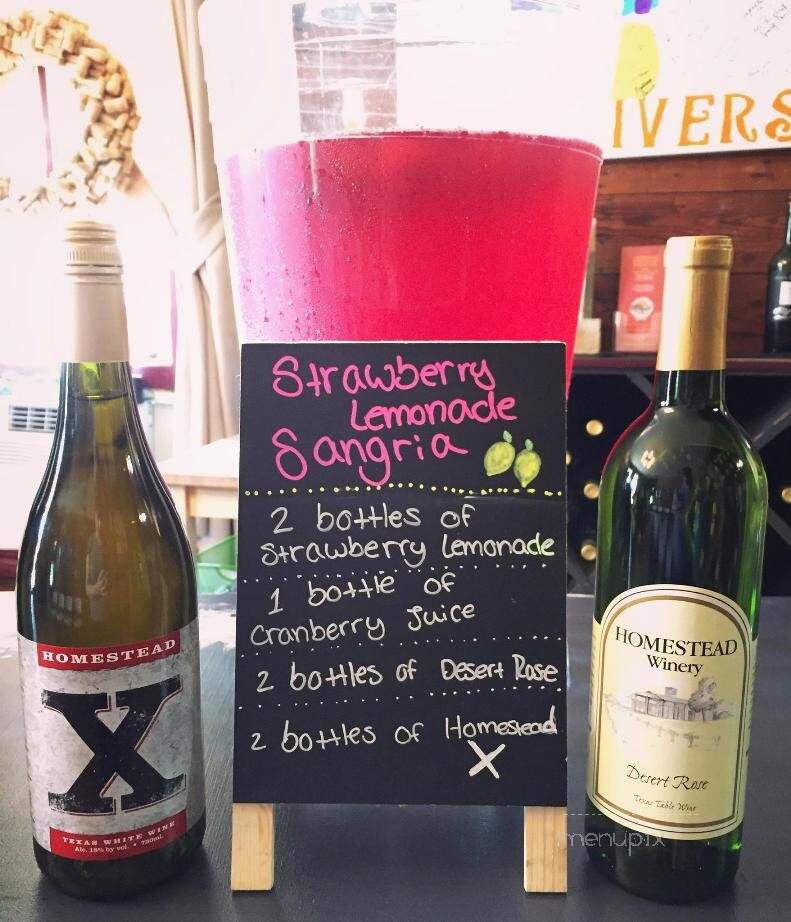 IVERS
Strawberry
Lemonade
Sangria
2 bottles of
Strawberry Lemonade
1 bottle of
Cranberry Juice
2 bottles of Desert Rose
2 bottles of Homestead
X
HOMESTEAD
X
TEXAS WHITE WINE
Alc. 15% by vol. • 750mL
HOMESTEAD
Winery
Desert Rose
Texas Table Wine
menupix